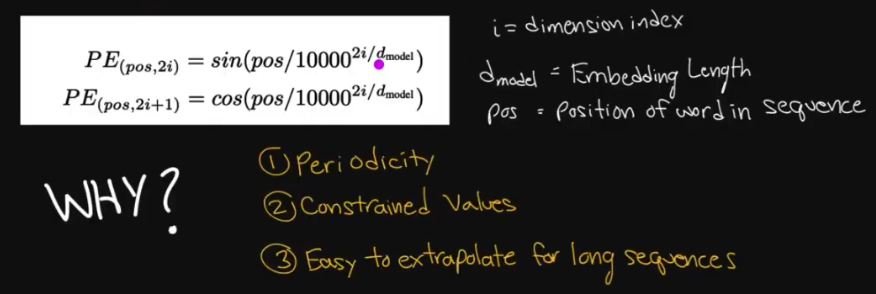 PE(pos,2i) = sin(pos/10000^2i/d_model)
PE(pos,2i+1) = cos(pos/10000^2i/d_model)
i = dimension index
d_model = Embedding Length
pos = Position of word in sequence
WHY?
① Periodicity
② Constrained Values
③ Easy to extrapolate for long sequences